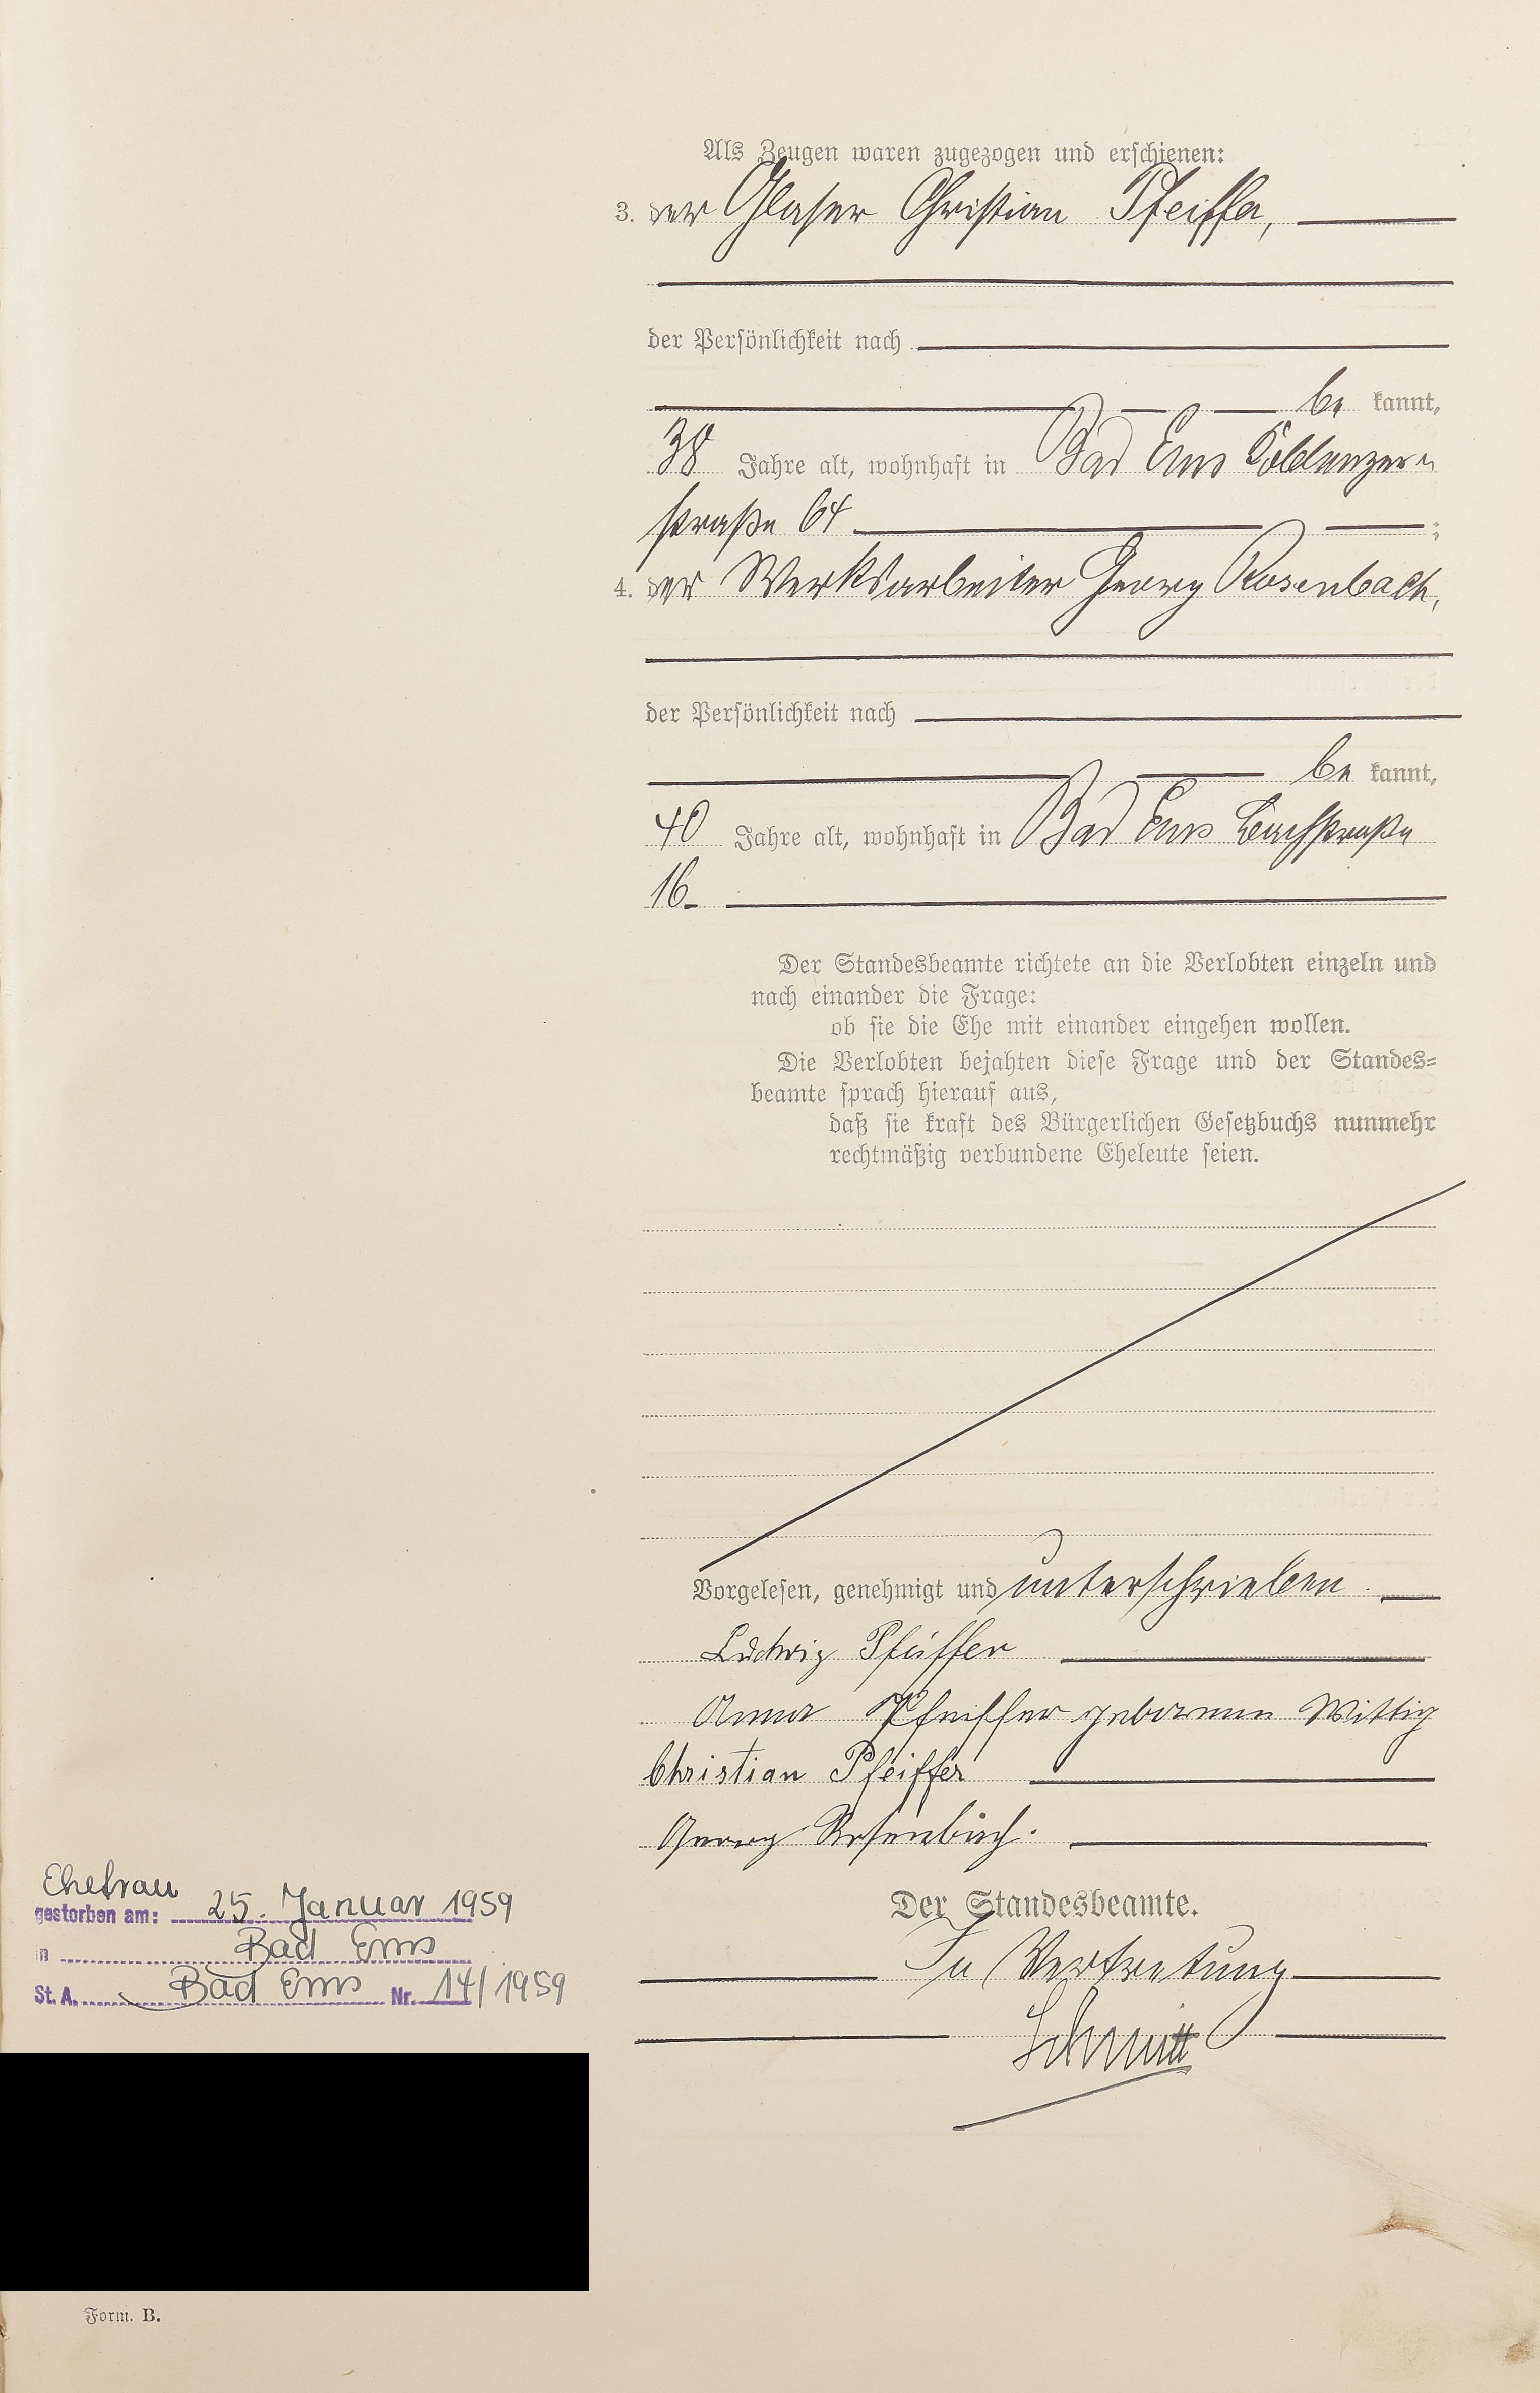 Als Zeugen waren zugezogen und erschienen:
3. der Glaser Christian Pfeiffer,
der Persönlichkeit nach
be kannt,
38 Jahre alt, wohnhaft in Bad Ems Coblenzer-
straße 64 ;
4. der Werksarbeiter Georg Rosenbach,
der Persönlichkeit nach
be kannt,
40 Jahre alt, wohnhaft in Bad Ems Bachstraße
16.
Der Standesbeamte richtete an die Verlobten einzeln und
nach einander die Frage:
ob sie die Ehe mit einander eingehen wollen.
Die Verlobten bejahten diese Frage und der Standes-
beamte sprach hierauf aus,
daß sie kraft des Bürgerlichen Gesetzbuchs nunmehr
rechtmäßig verbundene Eheleute seien.
Vorgelesen, genehmigt und unterschrieben
Ludwig Pfeiffer
Anna Pfeiffer geborenen Wittig
Christian Pfeiffer
Georg Rosenbach.
Der Standesbeamte.
In Vertretung
Schmitt
Ehefrau
gestorben am: 25. Januar 1959
in Bad Ems
St. A. Bad Ems Nr. 14/1959
Form. B.